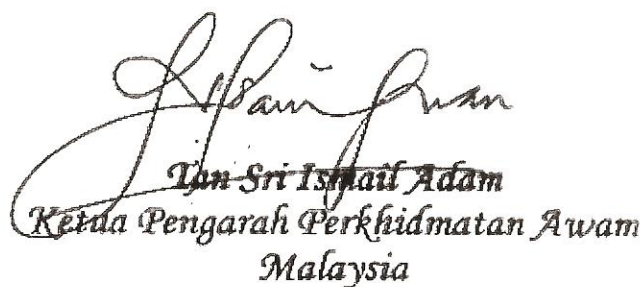 Tan Sri Ismail Adam
Ketua Pengarah Perkhidmatan Awam
Malaysia